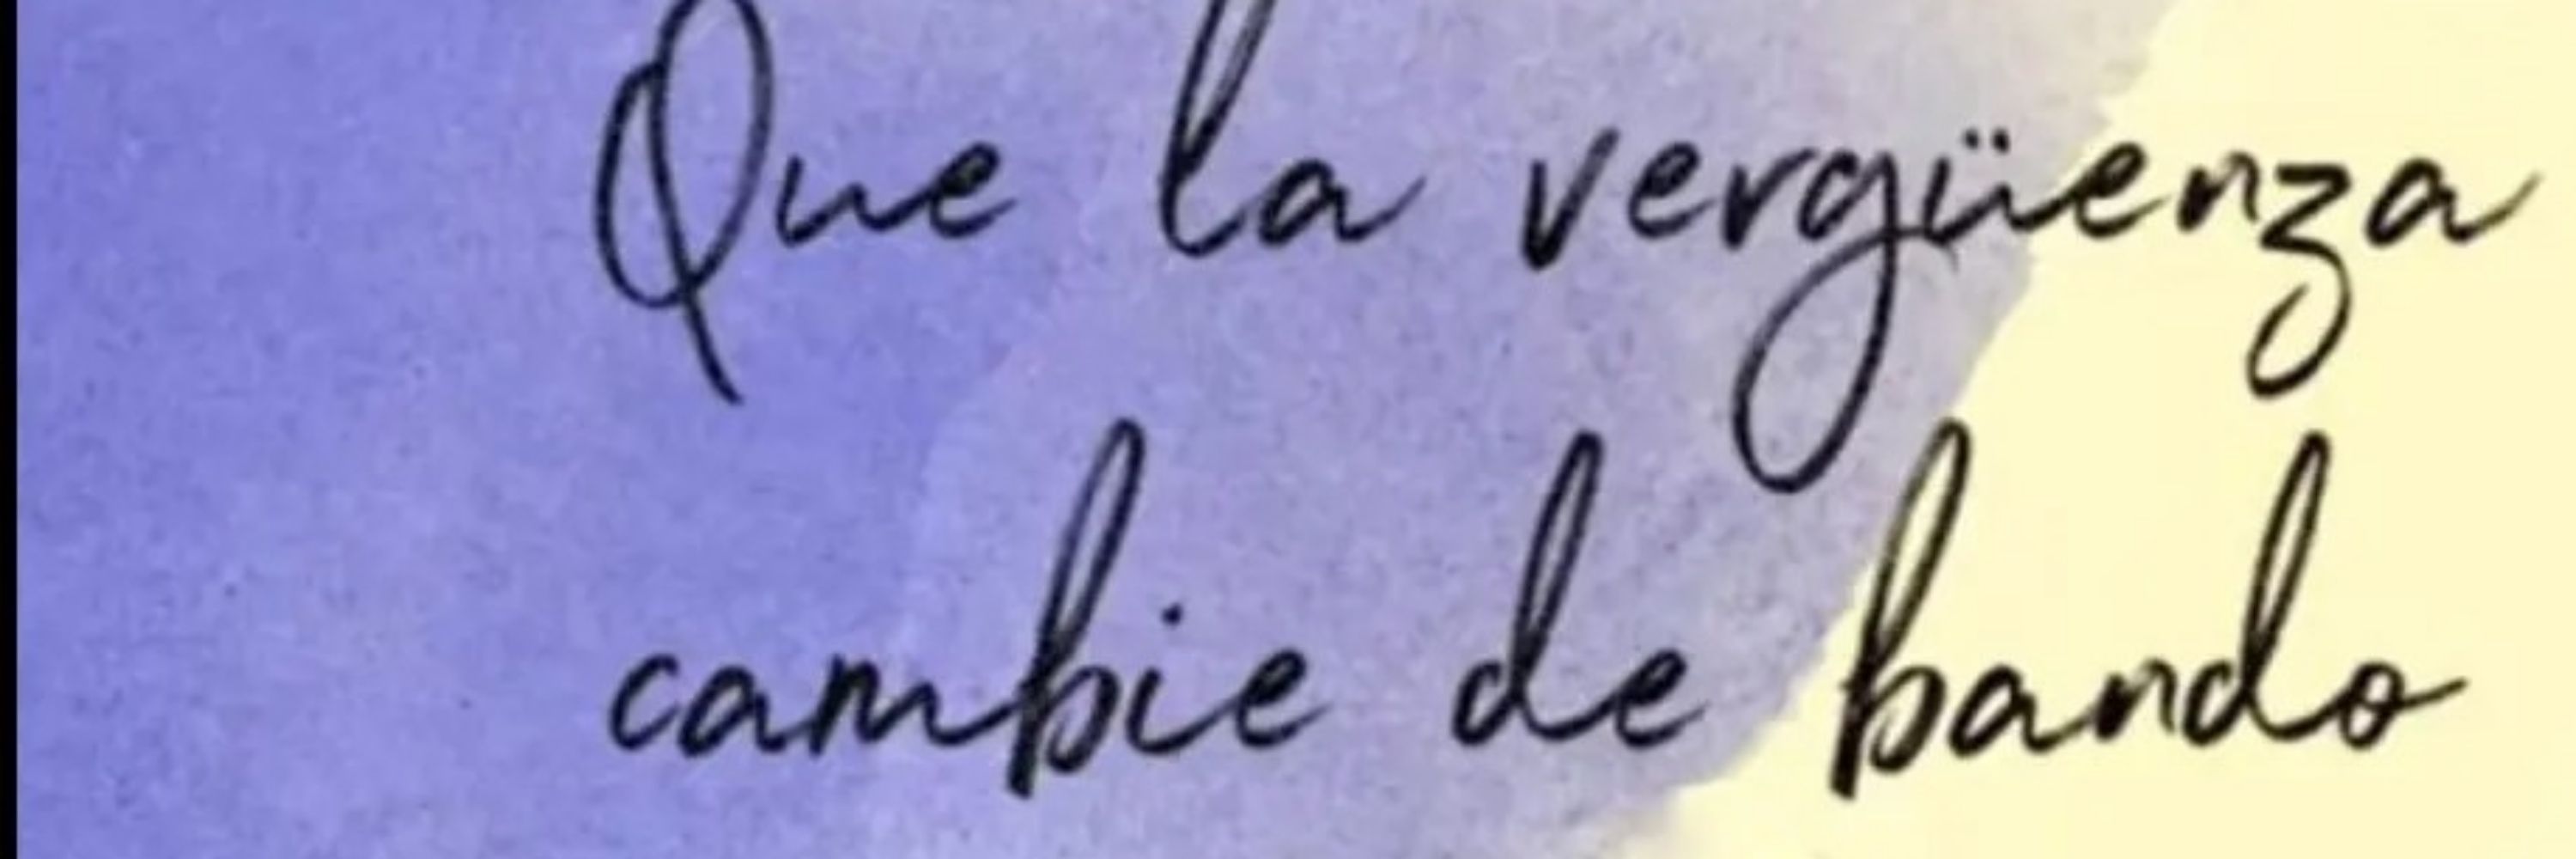 Que la vergüenza
cambie de bando